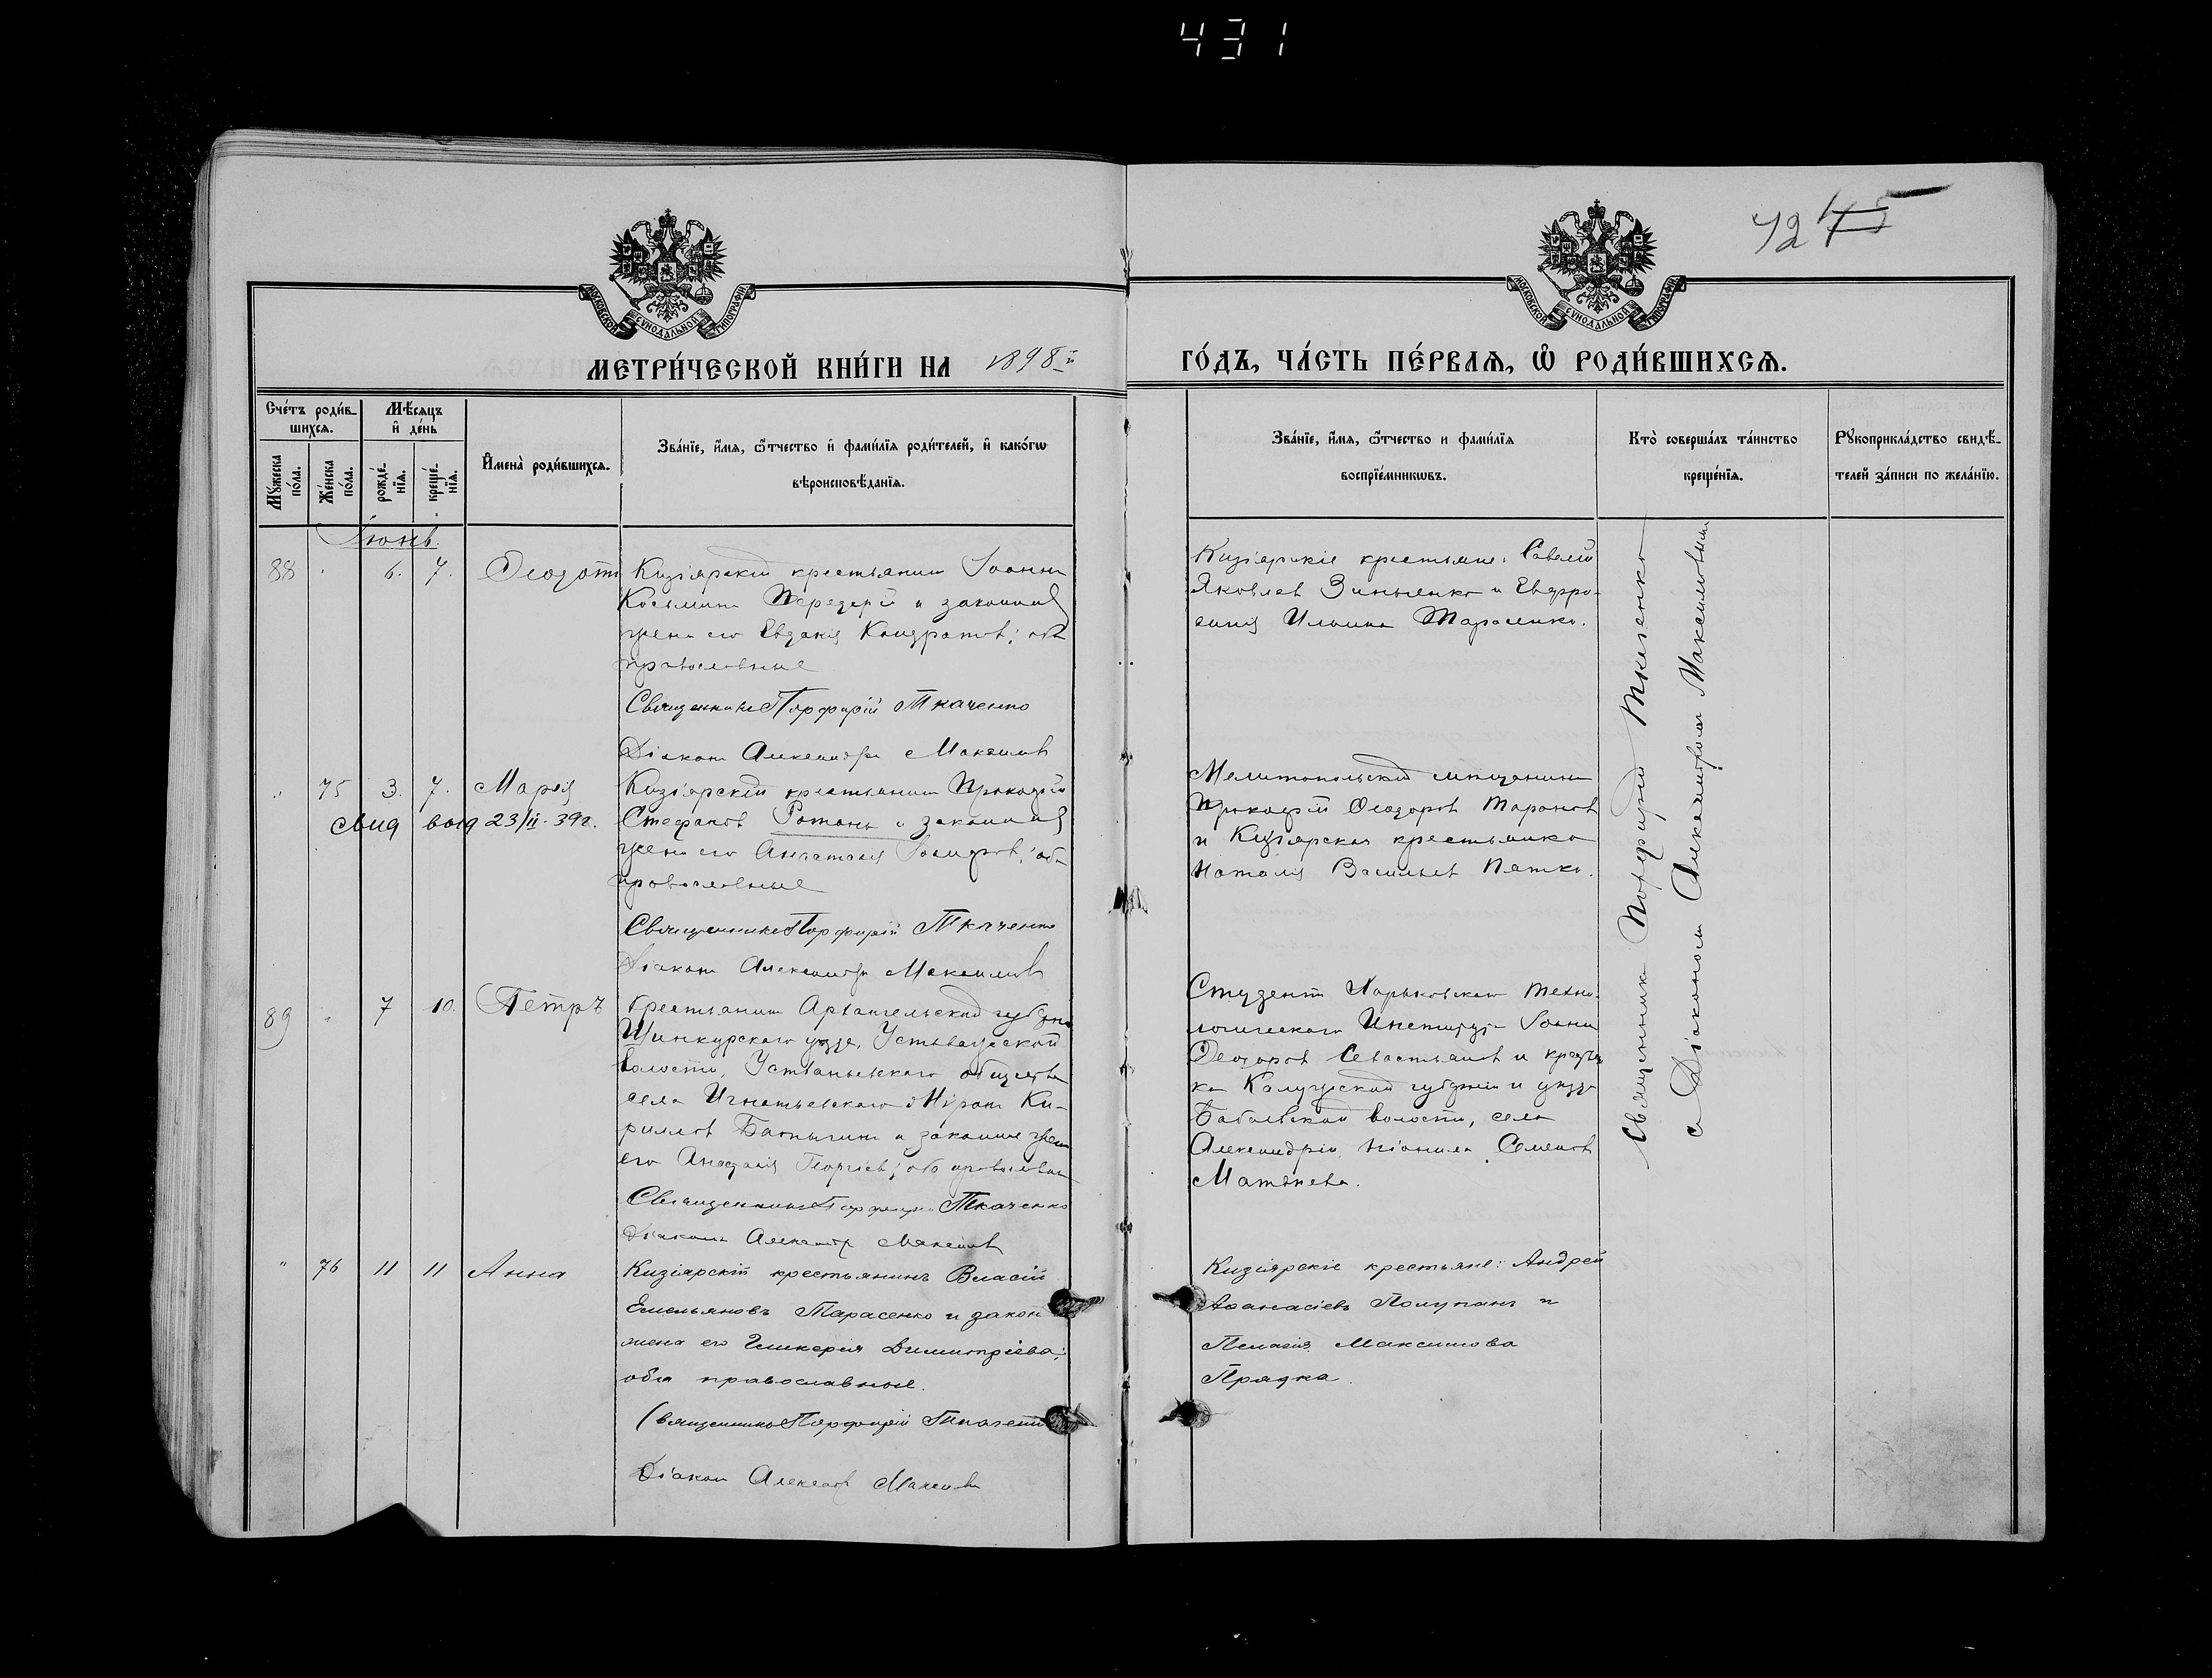 431
42 45
МОСКОВСКОЙ СѴНОДАЛЬНОЙ ТИПОГРАФІИ
МОСКОВСКОЙ СѴНОДАЛЬНОЙ ТИПОГРАФІИ
МЕТРИ́ЧЕСКОЙ КНИ́ГИ НА 1898й
ГО́ДЪ, ЧА́СТЬ ПЕ́РВАѦ, Ѡ҆ РОДИ́ВШИХСѦ.
Сче́тъ роди́в-
шихсѧ.
Мꙋ́жеска по́ла.
Же́нска по́ла.
Мѣ́сѧцъ
и҆ де́нь
рожде́-нїѧ.
креще́-нїѧ.
И҆мена̀ роди́вшихсѧ.
Зва́нїе, и҆́мѧ, ѻ҆́тчество и҆ фами́лїѧ роди́телей, и҆ како́гѡ
вѣроисповѣ́данїѧ.
Зва́нїе, и҆́мѧ, ѻ҆́тчество и фами́лїѧ
воспрїе́мникѡвъ.
Кто̀ соверша́лъ та́инство
креще́нїѧ.
Рꙋкоприкла́дство свидѣ́-
телей за́писи по жела́нїю.
Іюнь.
88 " 6. 7. Ѳеодотъ
Кизіярскій крестьянинъ Іоаннъ
Косьминъ Передерій и законная
жена его Евдокія Кондратов; оба
православные
Священникъ Порфирій Ткаченко
Діаконъ Александръ Максимовъ
Кизіярскіе крестьяне: Савелій
Яковлев Зинченко и Евфро-
синія Ильина Тарасенко.
" 75 3. 7. Марія
свид выд 23/II-39г.
Кизіярскій крестьянинъ Прокофій
Стефанов Ротань и законная
жена его Анастасія; оба
православные
Священникъ Порфирій Ткаченко
Діаконъ Александръ Максимовъ
Мелитопольскій мѣщанинъ
Прокофій Ѳеодоров Таранов
и Кизіярская крестьянка
Наталія Васильев Пятко.
89 " 7 10. Петръ
Крестьянинъ Архангельской губерніи
Шинкурскаго уѣзда, Устьважской
волости, общества
села Игнатьевскаго Миронъ Ки-
риллов и законная жена
его Георгіев; оба православные
Священникъ Порфирій Ткаченко
Діаконъ Александръ Максимовъ
Студентъ Харьковскаго Техно-
логическаго Института Іоаннъ
Ѳеодоров Севастьянов и крестьян-
ка Калужской губерніи и уѣзда
Бабаевской волости, села
Александріи, Неонила Семенов
Матвѣева.
" 76 11 11 Анна
Кизіярскій крестьянинъ Власій
Емельяновъ Тарасенко и закон
жена его Гликерія Димитріева;
оба православные.
Священникъ Порфирій Ткаченко
Діаконъ Александръ Максимовъ
Кизіярскіе крестьяне: Андрей
Аѳанасіевъ Полупанъ и
Пелагія Максимова
Прядка.
Священникъ Порфирій Ткаченко
съ Діакономъ Александромъ Максимовымъ